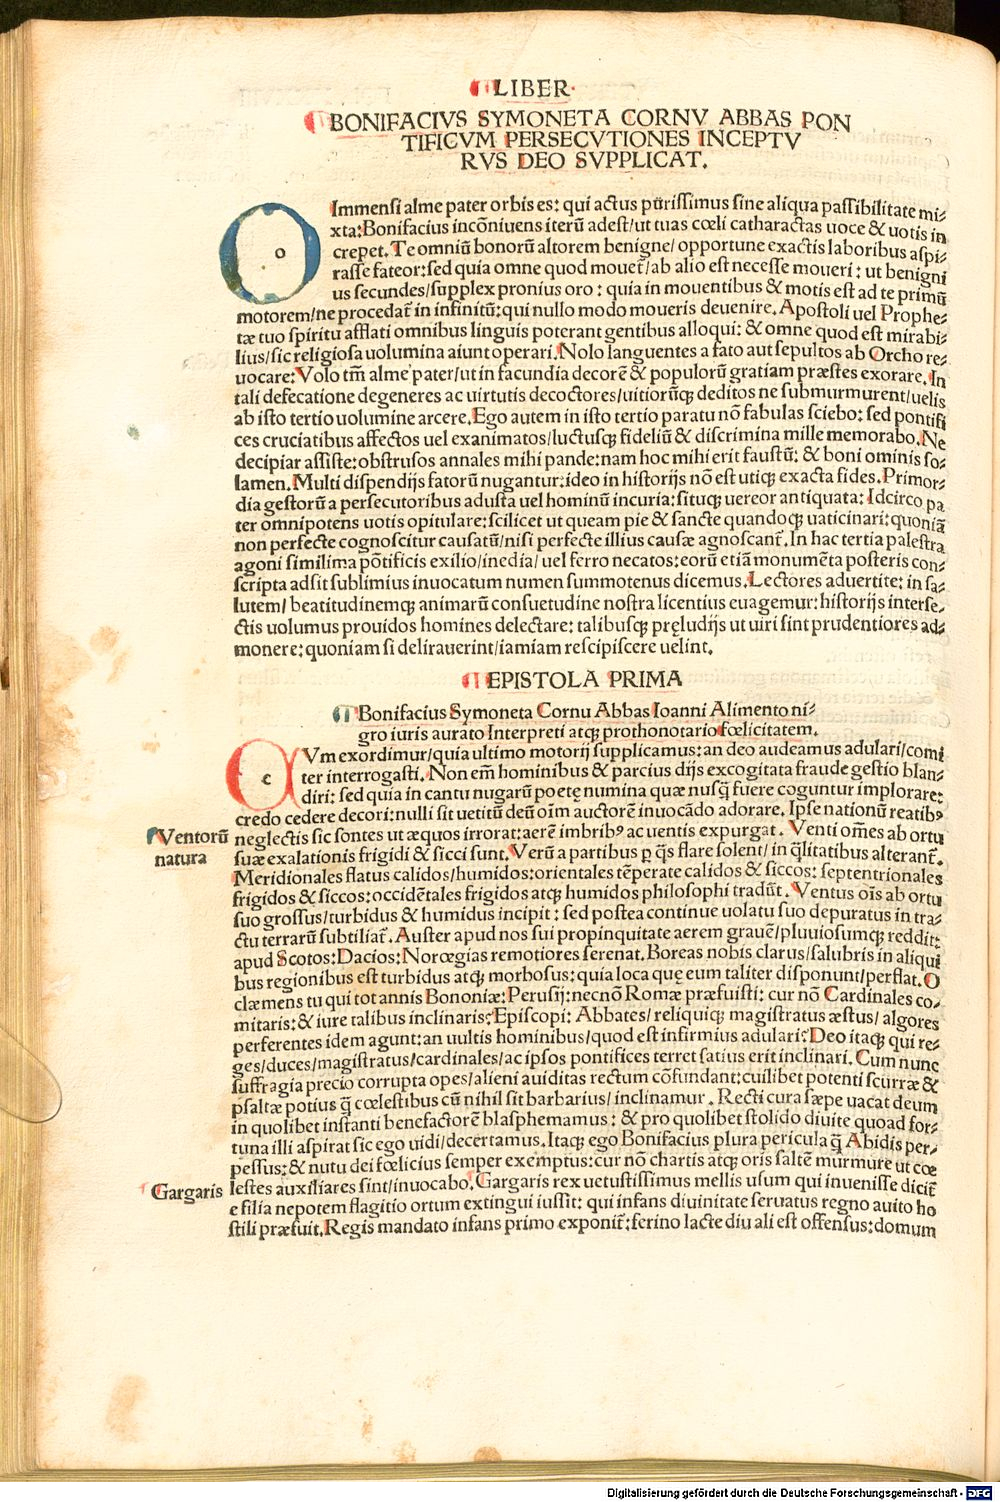 LIBER
BONIFACIVS SYMONETA CORNV ABBAS PON
TIFICVM PERSECVTIONES INCEPTV
RVS DEO SVPPLICAT.
o Immensi alme pater orbis es: qui actus purissimus sine aliqua passibilitate mi⸗
xta:Bonifacius incōniuens iterū adest/ut tuas cœli catharactas uoce & uotis in
crepet. Te omniū bonorū altorem benigne/ opportune exactis laboribus aspi⸗
rasse fateor:sed quia omne quod mouet̄/ab alio est necesse moueri: ut benigni
us secundes/supplex pronius oro: quia in mouentibus & motis est ad te primū
motorem/ne procedat̄ in infinitū:qui nullo modo moueris deuenire. Apostoli uel Prophe⸗
tæ tuo spiritu afflati omnibus linguis poterant gentibus alloqui: & omne quod est mirabi⸗
lius/sic religiosa uolumina aiunt operari. Nolo languentes a fato aut sepultos ab Orcho re⸗
uocare: Volo tm̄ alme pater/ut in facundia decorē & populorū gratiam præstes exorare. In
tali defecatione degeneres ac uirtutis decoctores/uitiorūqꝫ deditos ne submurmurent/uelis
ab isto tertio uolumine arcere. Ego autem in isto tertio paratu nō fabulas sciebo: sed pontifi
ces cruciatibus affectos uel exanimatos/luctusqꝫ fideliū & discrimina mille memorabo. Ne
decipiar assiste:obstrusos annales mihi pande:nam hoc mihi erit faustū: & boni ominis so⸗
lamen. Multi dispendijs fatorū nugantur:ideo in historijs nō est utiqꝫ exacta fides. Primor⸗
dia gestorū a persecutoribus adusta uel hominū incuria:situqꝫ uereor antiquata: Idcirco pa
ter omnipotens uotis opitulare:scilicet ut queam pie & sancte quandoqꝫ uaticinari:quoniā
non perfecte cognoscitur causatū/nisi perfecte illius causæ agnoscant̄. In hac tertia palestra
agoni similima pōtificis exilio/inedia/uel ferro necatos:eorū etiā monumēta posteris con⸗
scripta adsit sublimius inuocatum numen summotenus dicemus. Lectores aduertite: in sa⸗
lutem/ beatitudinemqꝫ animarū consuetudine nostra licentius euagemur:historijs interse⸗
ctis uolumus prouidos homines delectare: talibusqꝫ pręludijs ut uiri sint prudentiores ad⸗
monere:quoniam si delirauerint/iamiam rescipiscere uelint.
EPISTOLA PRIMA
Bonifacius Symoneta Cornu Abbas Ioanni Alimento ni⸗
gro iuris aurato Interpreti atqꝫ prothonotario fœlicitatem.
c Vm exordimur/quia ultimo motorij supplicamus:an deo audeamus adulari/comi
ter interrogasti. Non em̄ hominibus & parcius dijs excogitata fraude gestio blan⸗
diri: sed quia in cantu nugarū poetę numina quæ nusq̄ fuere coguntur implorare:
credo cedere decori:nulli sit uetitū deū oīm auctorē inuocādo adorare. Ipse nationū reatibꝰ
Ventorū
natura
neglectis sic sontes ut æquos irrorat:aerē imbribꝰ ac uentis expurgat. Venti om̄es ab ortu
suæ exalationis frigidi & sicci sunt. Verū a partibus p q̄s flare solent/ in q̄litatibus alterant̄.
Meridionales flatus calidos/humidos:orientales tēperate calidos & siccos: septentrionales
frigidos & siccos:occidētales frigidos atqꝫ humidos philosophi tradūt. Ventus oīs ab ortu
suo grossus/turbidus & humidus incipit: sed postea continue uolatu suo depuratus in tra⸗
ctu terrarū subtiliat̄. Auster apud nos sui propinquitate aerem grauē/pluuiosumqꝫ reddit:
apud Scotos:Dacios: Norœgias remotiores serenat. Boreas nobis clarus/salubris in aliqui
bus regionibus est turbidus atqꝫ morbosus: quia loca quę eum taliter disponunt/perflat. O
clæmens tu qui tot annis Bononiæ: Perusij:necnō Romæ præfuisti: cur nō Cardinales co⸗
mitaris:& iure talibus inclinaris? Episcopi: Abbates/reliquiqꝫ magistratus æstus/ algores
perferentes idem agunt:an uultis hominibus/quod est infirmius adulari? Deo itaqꝫ qui re⸗
ges/duces/magistratus/cardinales/ac ipsos pontifices terret satius erit inclinari. Cum nunc
suffragia precio corrupta opes/alieni auiditas rectum cōfundant:cuilibet potenti scurræ &
psaltæ potius q̄ cœlestibus cū nihil sit barbarius/inclinamur. Recti cura sæpe uacat deum
in quolibet instanti benefactorē blasphemamus: & pro quolibet stolido diuite quoad for⸗
tuna illi aspirat sic ego uidi/decertamus. Itaqꝫ ego Bonifacius plura pericula q̄ Abidis per⸗
pessus:& nutu dei fœlicius semper exemptus:cur nō chartis atqꝫ oris saltē murmure ut cœ
Gargaris
lestes auxiliares sint/inuocabo. Gargaris rex uetustissimus mellis usum qui inuenisse dicit̄
e filia nepotem flagitio ortum extingui iussit: qui infans diuinitate seruatus regno auito ho
stili præfuit. Regis mandato infans primo exponit̄:ferino lacte diu ali est offensus:domum
Digitalisierung gefördert durch die Deutsche Forschungsgemeinschaft - DFG